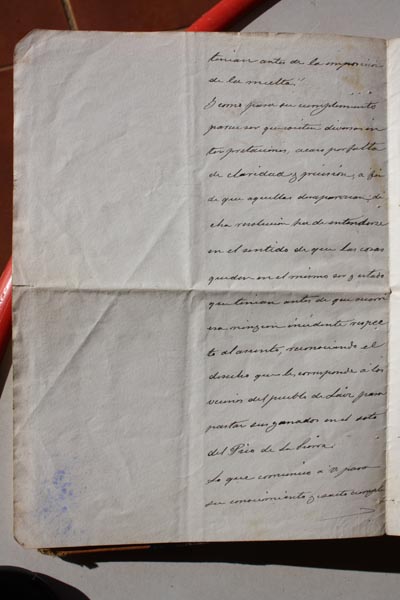 tenian antes de la imposicion
de la multa."
Y como para su cumplimiento
parece ser que existen diversas in
terpretaciones, acaso por falta
de claridad y precision, a fin
de que aquellas desaparezcan, di
cha resolución ha de entenderse
en el sentido de que las cosas
queden en el mismo ser y estado
que tenian antes de que ocurri
era ningun incidente respec
to al asunto, reconociendo el
derecho que le corresponde a los
vecinos del pueblo de para
pastar sus ganados en el soto
del Prio de la
Lo que comunico a V para
su conocimiento y exacto cumpli